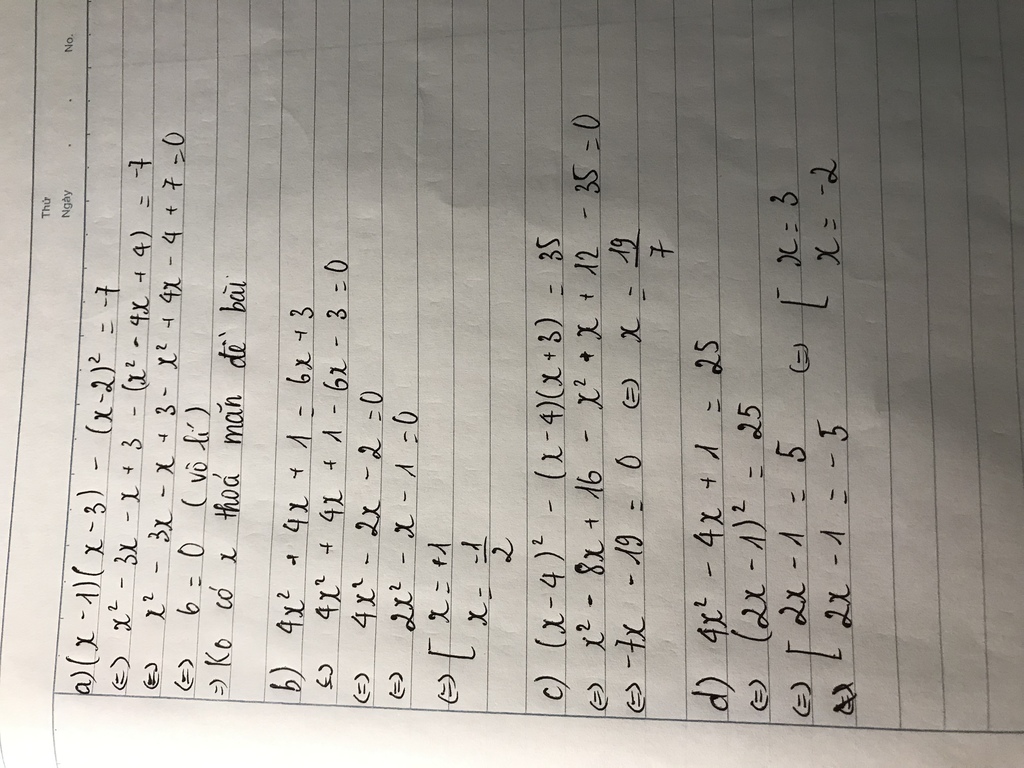 Thứ
Ngày
No.
a) (x - 1)(x - 3) - (x - 2)² = -7
(=) x² - 3x - x + 3 - (x² - 4x + 4) = -7
(=) x² - 3x - x + 3 - x² + 4x - 4 + 7 = 0
(=) 6 = 0 (vô lí)
=) Ko có x thoả mãn đề bài
b) 4x² + 4x + 1 = 6x + 3
(=) 4x² + 4x + 1 - 6x - 3 = 0
(=) 4x² - 2x - 2 = 0
(=) 2x² - x - 1 = 0
(=) [ x = +1
x = -1/2
c) (x - 4)² - (x - 4)(x + 3) = 35
(=) x² - 8x + 16 - x² + x + 12 - 35 = 0
(=) -7x - 19 = 0 (=) x = -19/7
d) 4x² - 4x + 1 = 25
(=) (2x - 1)² = 25
(=) [ 2x - 1 = 5 (=) [ x = 3
2x - 1 = -5 x = -2